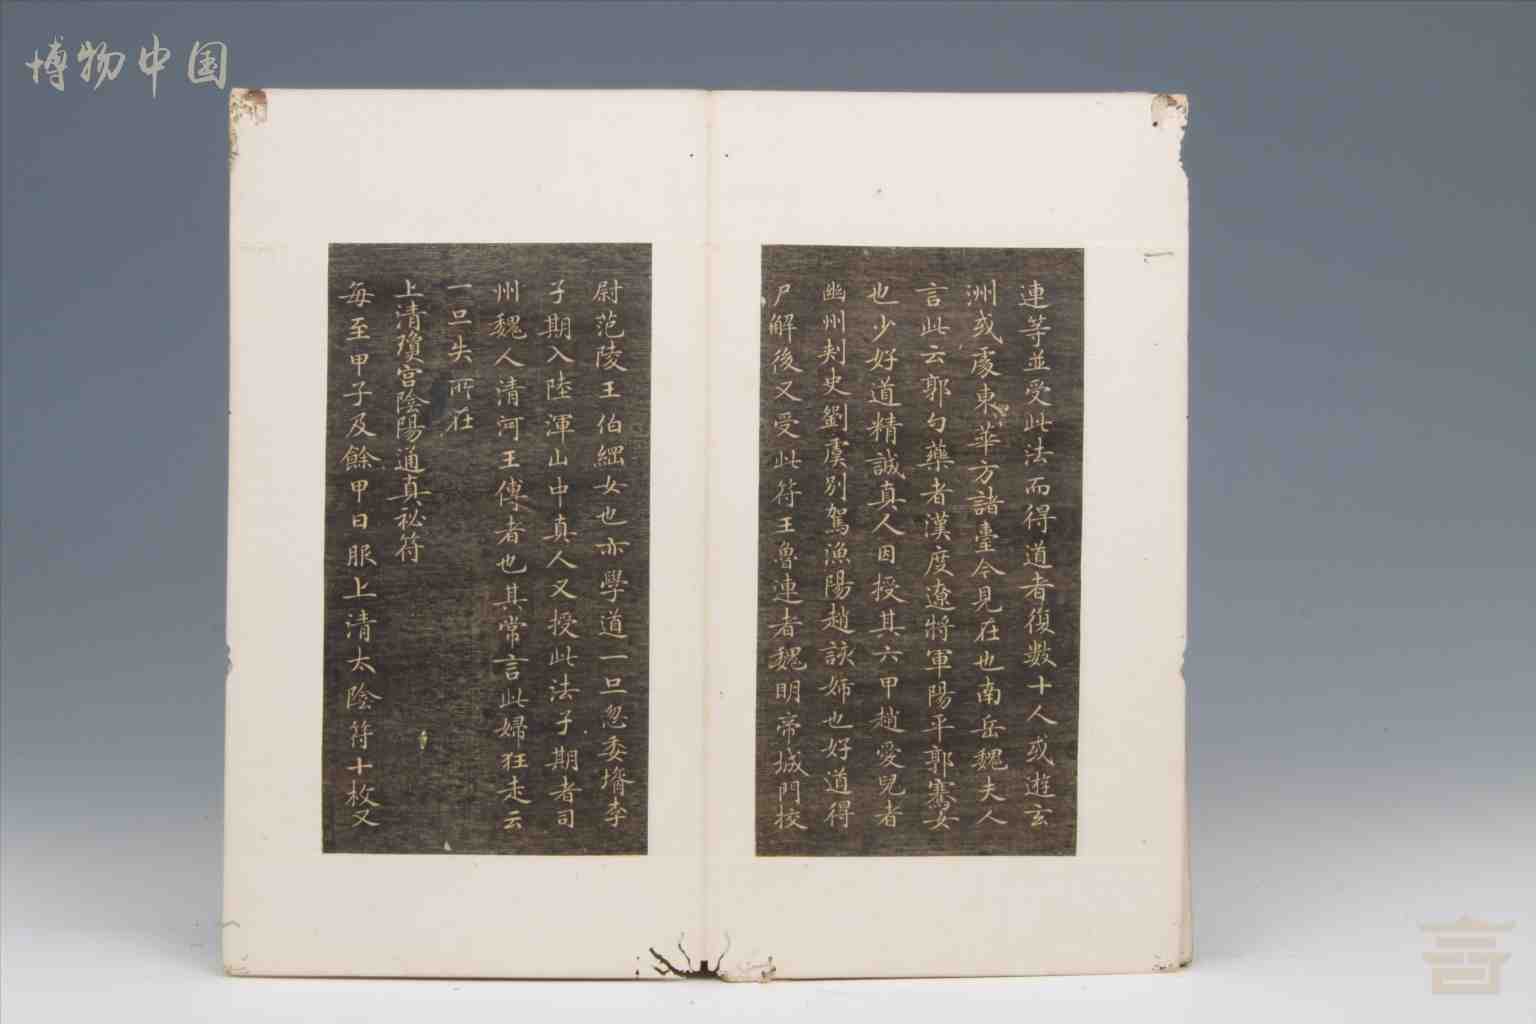 博物中国
連等並受此法而得道者復数十人或遊玄
洲或處東華方諸臺今見在也南岳魏夫人
言此云郭勺藥者漢度遼將軍陽平郭騫女
也少好道精誠真人因授其六甲趙愛兒者
幽州刾史劉虞別駕漁陽趙該姉也好道得
尸解後又受此符王魯連者魏明帝城門校
尉范陵王伯綱女也亦學道一旦忽委壻李
子期入陸渾山中真人又授此法子期者司
州魏人清河王傅者也其常言此婦狂走云
一旦失所在
上清瓊宮陰陽通真祕符
每至甲子及餘甲日服上清太陰符十枚又